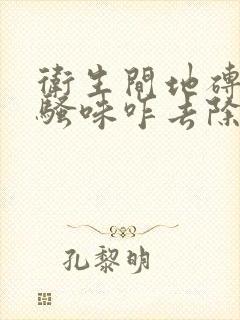 衛生間地磚
騷味咋去除
孔黎明